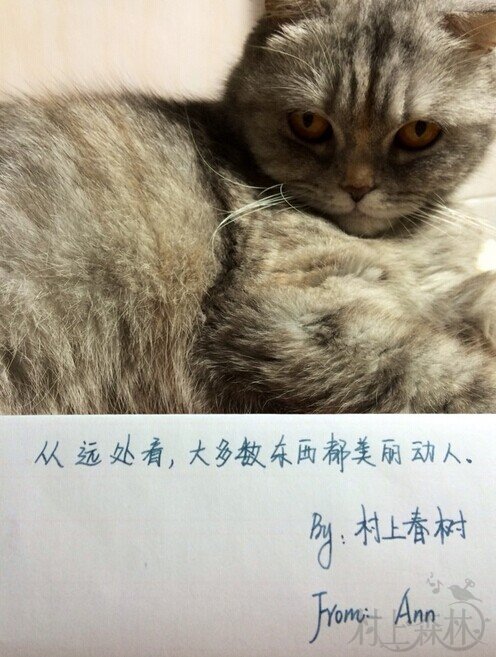 从远处看，大多数东西都美丽动人。
By: 村上春树
From: Ann
村上森林